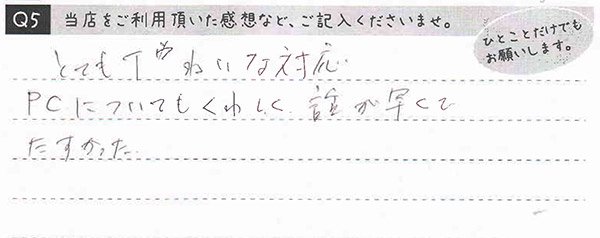 Q5 当店をご利用頂いた感想など、ご記入くださいませ。
ひとことだけでも
お願いします。
とても丁ねいな対応
PCについてもくわしく 話が早くて
たすかった